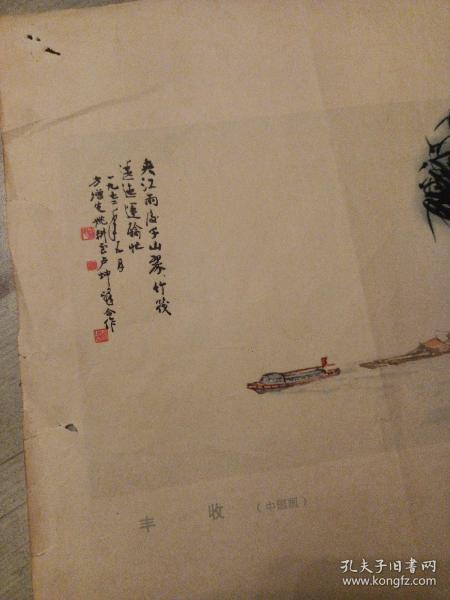 夹江雨后千山翠竹筏
送运运输忙
一九七二年元月
方增先姚耕云卢坤峰合作
丰 收 （中国画）
孔夫子旧书网
www.kongfz.com